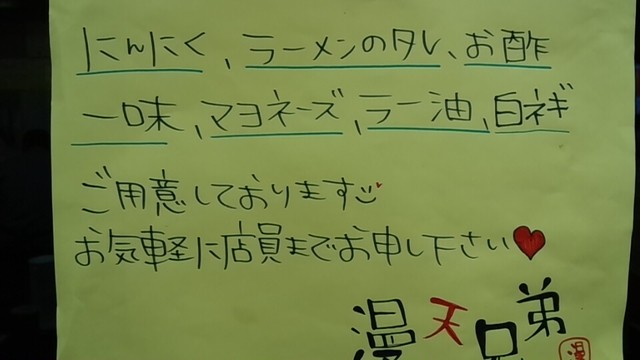 にんにく、ラーメンのタレ、お酢
一味、マヨネーズ、ラー油、白ネギ
ご用意しております
お気軽に店員までお申し下さい
漫天兄弟